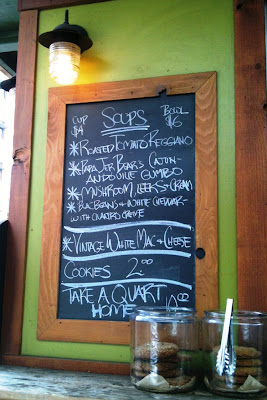 SOUPS
CUP $4
BOWL $6
* ROASTED TOMATO REGGIANO
* PAPA JOE BEAR'S CAJUN
ANDOUILLE GUMBO
* MUSHROOM, LEEKS + CREAM
* BLACK BEANS + WHITE CHEDDAR
WITH CREME
* VINTAGE WHITE MAC + CHEESE
COOKIES 2.00
TAKE A QUART
HOME 10.00